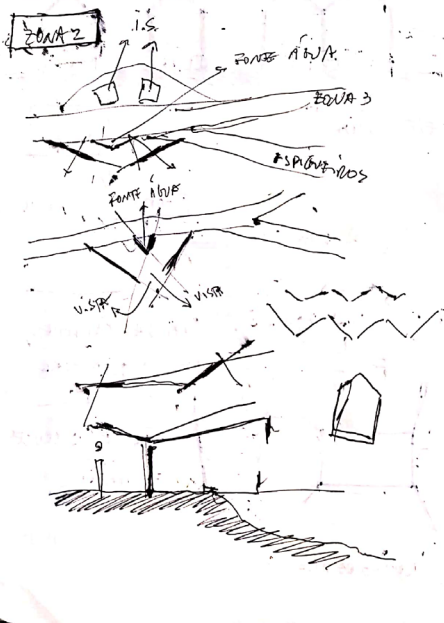 ZONA 2
I.S.
FONTE ÁGUA.
ZONA 3
ESPIGUEIROS
FONTE ÁGUA
VISTA
VISTA